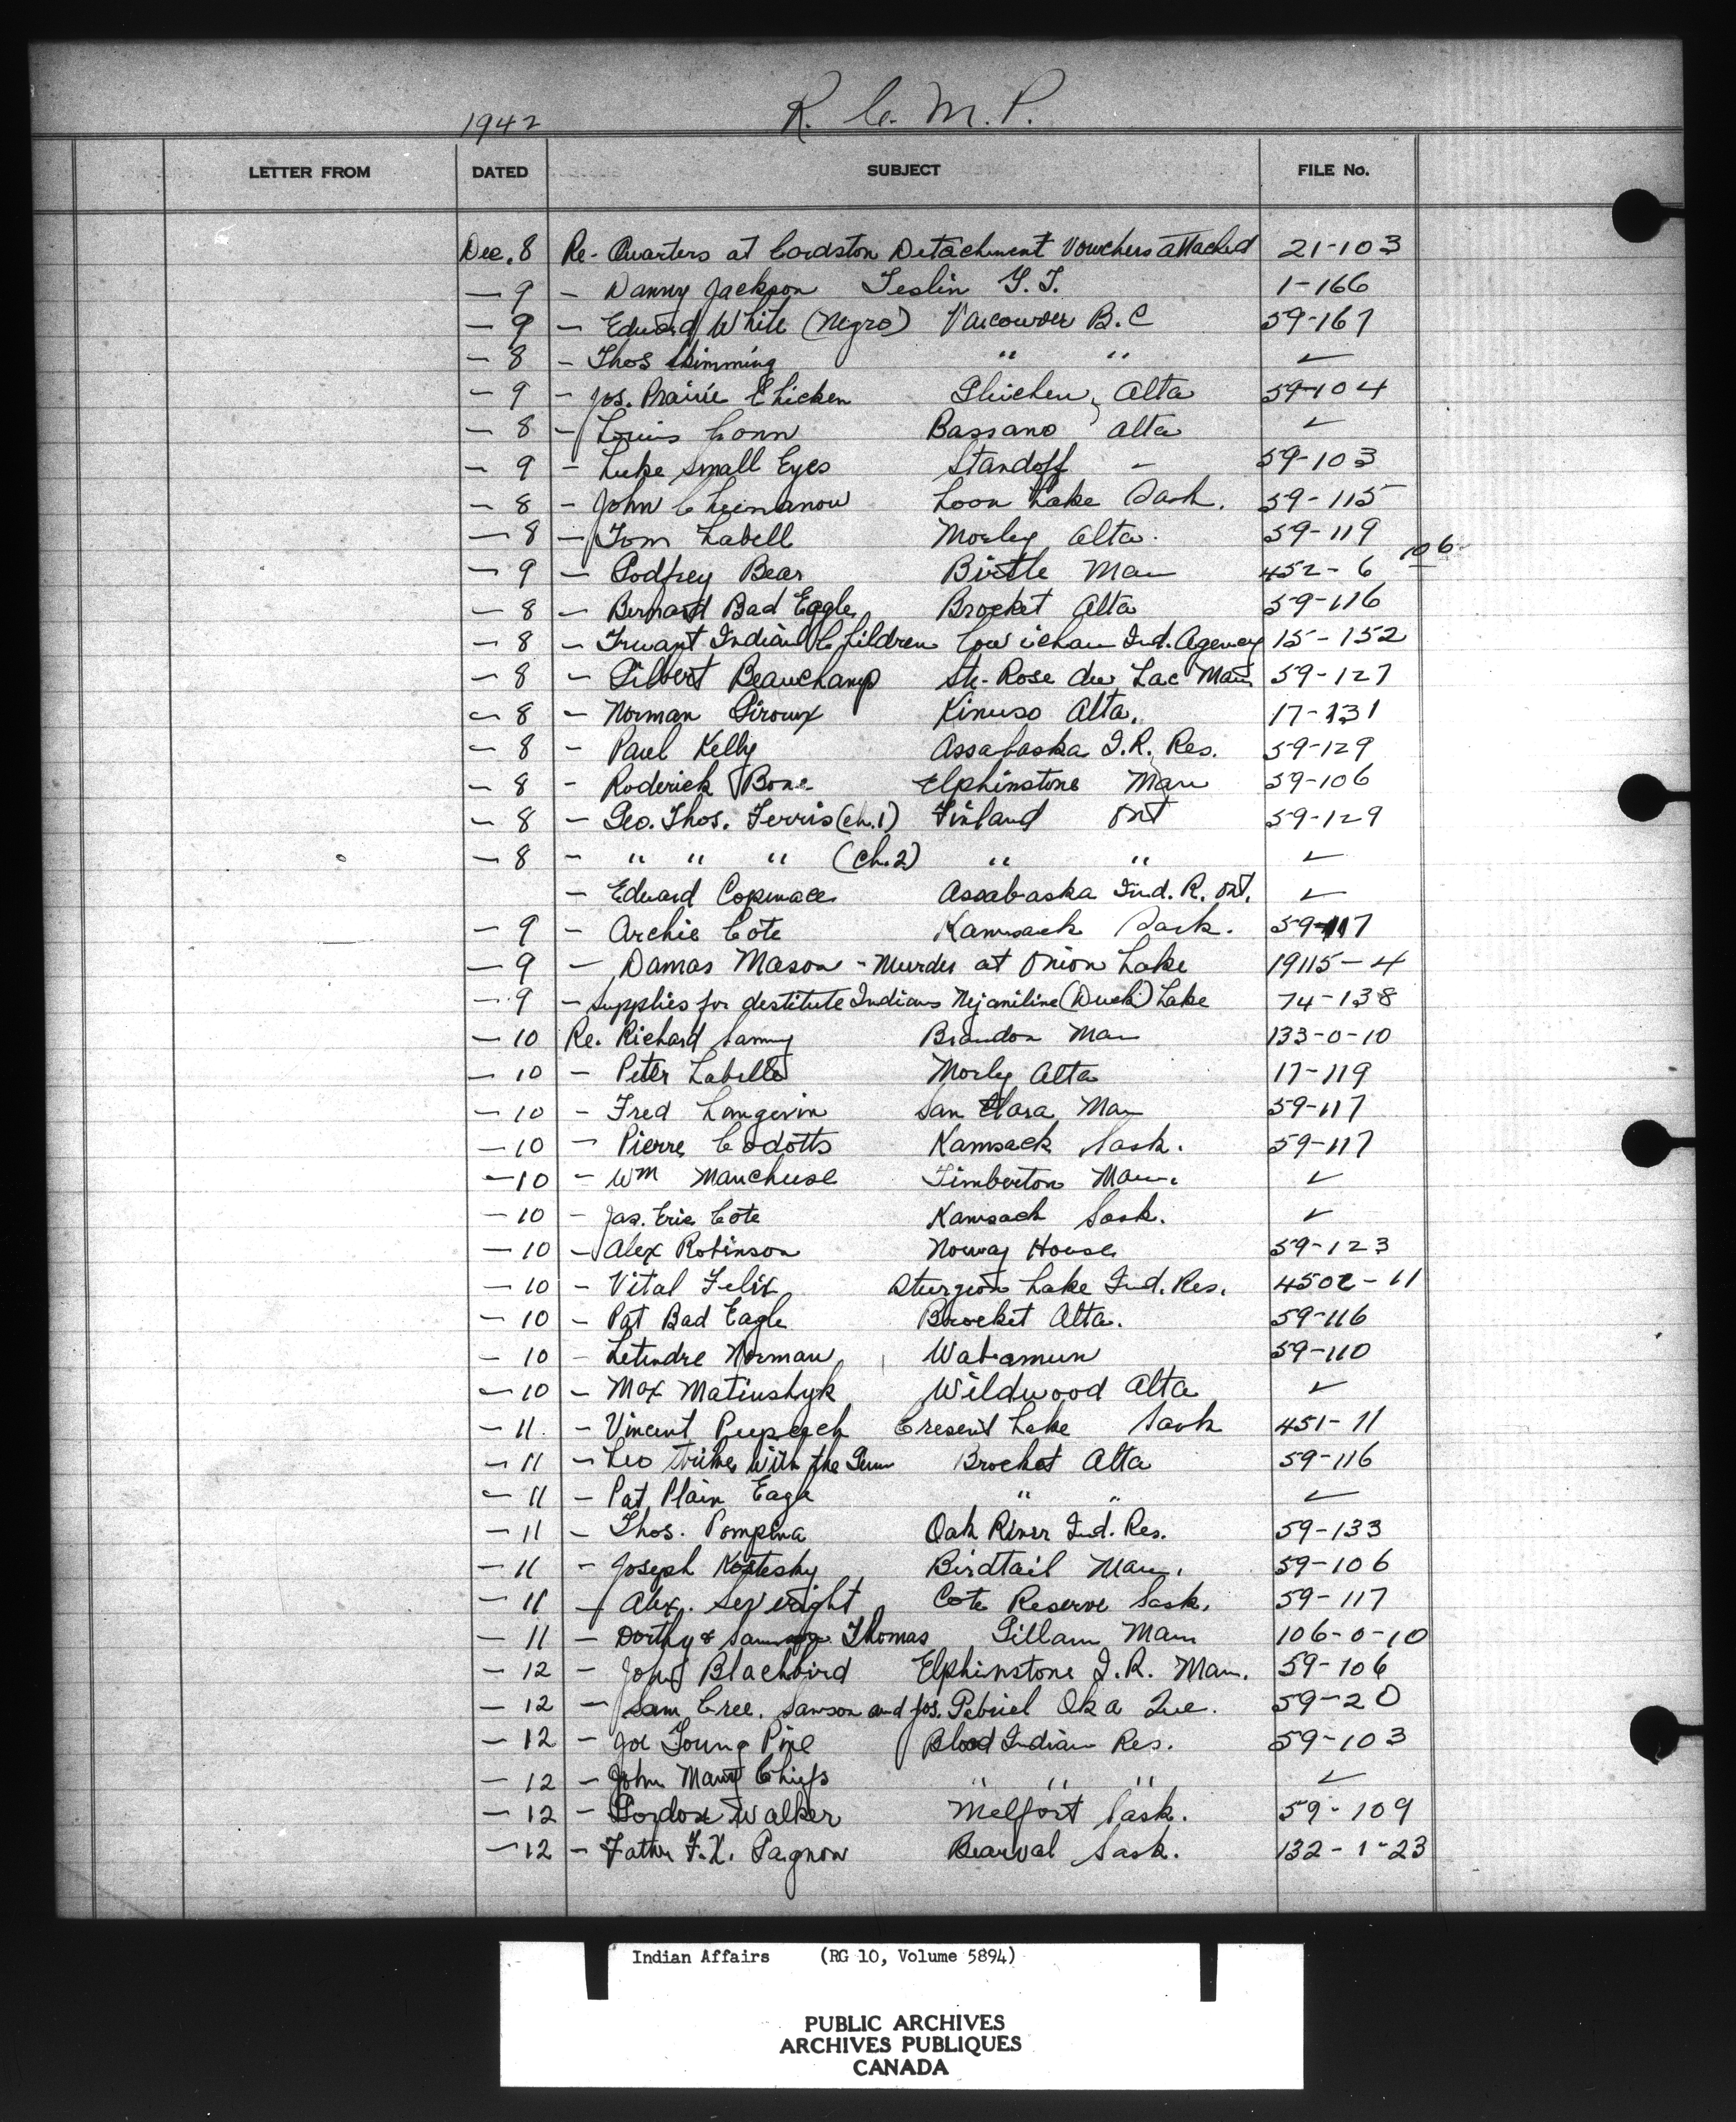 1942 R. C. M. P.
LETTER FROM DATED SUBJECT FILE No.
Dec. 8 Re- Quarters at Cardston Detachment Vouchers attached 21-103
— 9 — Danny Jackson Teslin Y.T. 1-166
— 9 — Edward White (Negro) Vancouver B.C 59-167
— 8 — Thos " " ✓
— 9 — Jos. Prairie Chicken Gleichen, Alta 59-104
— 8 — Louis Conn Bassano Alta ✓
— 9 — Luke Small Eyes Standoff — 59-103
— 8 — John Loon Lake Sask. 59-115
— 8 — Tom Labell Morley Alta. 59-119
— 9 — Godfrey Bear Birtle Man 452-6 106
— 8 — Bernard Bad Eagle Brocket Alta 59-116
— 8 — Truant Indian Children Cowichan Ind. Agency 15-152
— 8 — Gilbert Beauchamp Ste. Rose du Lac Man 59-127
— 8 — Norman Giroux Kinuso Alta. 17-131
— 8 — Paul Kelly Assabaska I.R. Res. 59-129
— 8 — Roderick Bone Elphinstone Man 59-106
— 8 — Geo. Thos. Ferris (ch.1) Finland Ont 59-129
— 8 — " " " (ch.2) " " ✓
— Edward Copenace Assabaska Ind. R. Ont. ✓
— 9 — Archie Cote Kamsack Sask. 59-117
— 9 — Damas Mason - Murder at Onion Lake 19115-4
— 9 — Supplies for destitute Indians Nejaniline (Duck) Lake 74-138
— 10 Re. Richard Brandon Man 133-0-10
— 10 — Peter Labelle Morley Alta 17-119
— 10 — Fred Langevin San Clara Man 59-117
— 10 — Pierre Codotts Kamsack Sask. 59-117
— 10 — Wm Manchuse Timberton Man. ✓
— 10 — Jas. Eric Cote Kamsack Sask. ✓
— 10 — Alex Robinson Norway House 59-123
— 10 — Vital Felix Sturgeon Lake Ind. Res. 4502-11
— 10 — Pat Bad Eagle Brocket Alta. 59-116
— 10 — Letendre Norman Wabamun 59-110
— 10 — Max Matiushyk Wildwood Alta ✓
— 11 — Vincent Cresent Lake Sask 451-11
— 11 — Leo Strikes With the Gun Brocket Alta 59-116
— 11 — Pat Plain Eagle " " ✓
— 11 — Thos. Pompana Oak River Ind. Res. 59-133
— 11 — Joseph Kostesky Birdtail Man. 59-106
— 11 — Alex. Severight Cote Reserve Sask. 59-117
— 11 — Dorthy & Thomas Gillam Man 106-0-10
— 12 — John Blackbird Elphinstone I.R. Man. 59-106
— 12 — Sam Cree. Samson and Jos. Gabriel Oka Que. 59-20
— 12 — Joe Young Pine Blood Indian Res. 59-103
— 12 — John Many Chiefs " " " ✓
— 12 — Gordon Walker Melfort Sask. 59-109
— 12 — Father F.X. Gagnon Beauval Sask. 132-1-23
Indian Affairs (RG 10, Volume 5894)
PUBLIC ARCHIVES
ARCHIVES PUBLIQUES
CANADA